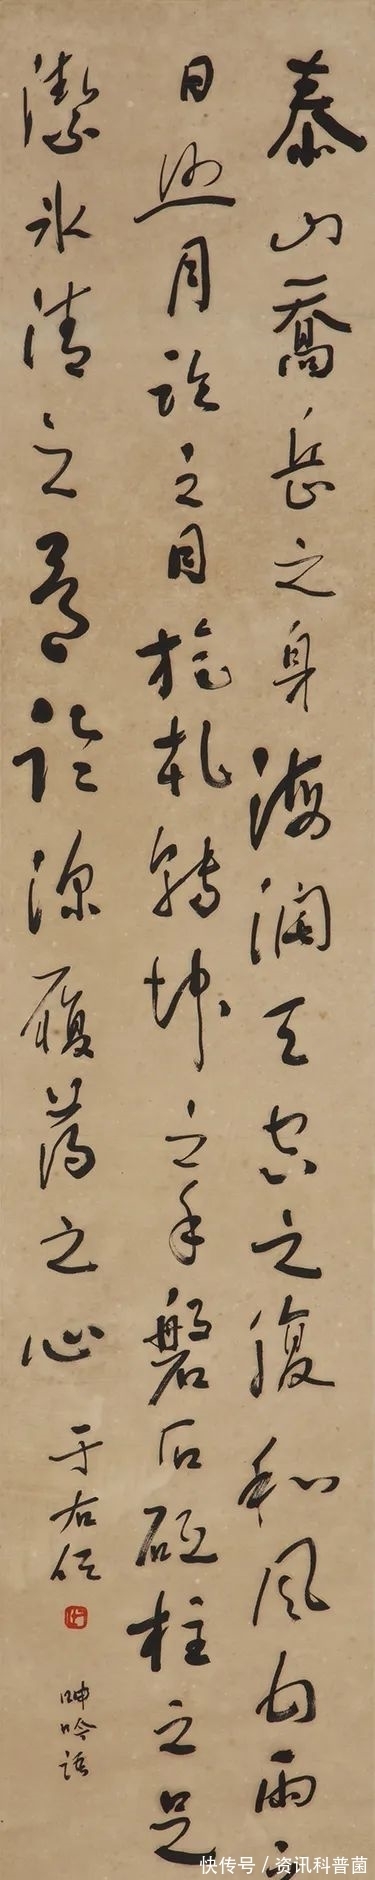 泰山喬岳之身海闊天空之腹和風甘雨之
日照月臨之目旋乾轉坤之手磐石砥柱之足
潔冰清之骨臨深履薄之心
于右任
呻吟語
快传号／资讯科普菌